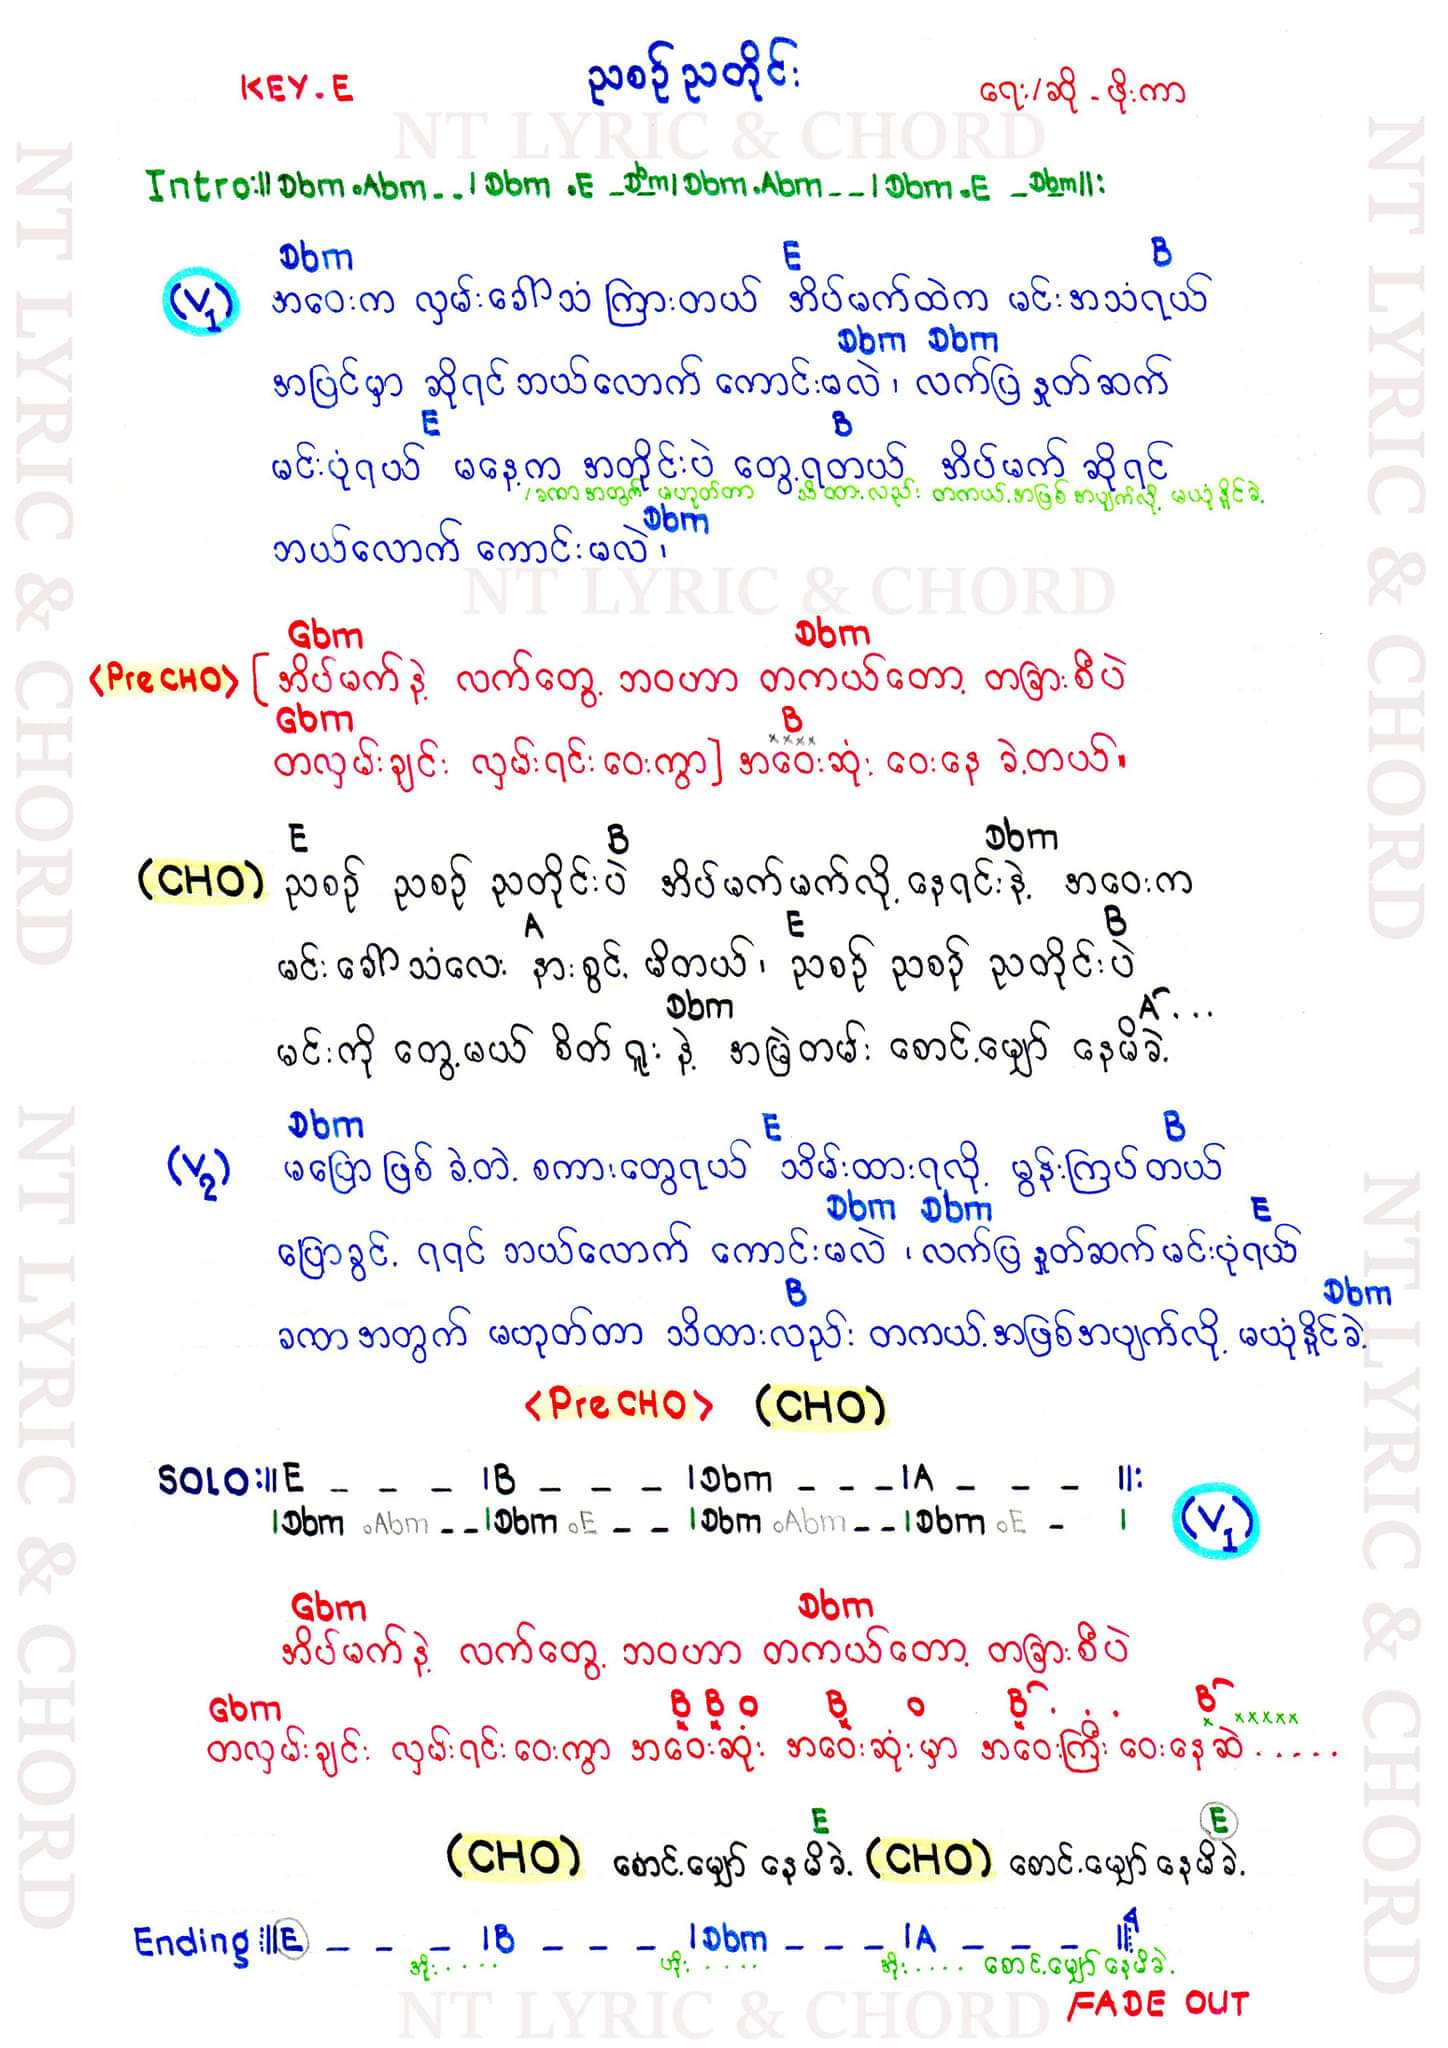 KEY.E
ညစဉ်ညတိုင်း
ရေး/ဆို - ဖိုးကာ
NT LYRIC & CHORD
Intro:|| Dbm.Abm _ _ | Dbm .E _Dbm | Dbm.Abm _ _ | Dbm.E _Dbm ||:
Dbm E B
(V1) အဝေးက လှမ်းခေါ်သံ ကြားတယ် အိပ်မက်ထဲက မင်းအသံရယ်
Dbm Dbm
အပြင်မှာ ဆိုရင် ဘယ်လောက် ကောင်းမလဲ၊ လက်ပြ နှုတ်ဆက်
E B
မင်းပုံရယ် မနေ့က အတိုင်းပဲ တွေ့ရတယ် အိပ်မက် ဆိုရင်
/ခဏအတွက် မဟုတ်တာ သိထားလည်း တကယ့်အဖြစ်အပျက်လို့ မယုံနိုင်ခဲ့
Dbm
ဘယ်လောက် ကောင်းမလဲ၊
NT LYRIC & CHORD
Gbm Dbm
<Pre CHO> [ အိပ်မက်နဲ့ လက်တွေ့ ဘဝဟာ တကယ်တော့ တခြားစီပဲ
Gbm B
xxxx
တလှမ်းချင်း လှမ်းရင်းဝေးကွာ ] အဝေးဆုံး ဝေးနေ ခဲ့တယ်။
E B Dbm
(CHO) ညစဉ် ညစဉ် ညတိုင်းပဲ အိပ်မက်မက်လို့ နေရင်းနဲ့ အဝေးက
A E B
မင်းခေါ်သံလေး နားစွင့် မိတယ်၊ ညစဉ် ညစဉ် ညတိုင်းပဲ
Dbm A . . .
မင်းကို တွေ့မယ် စိတ်ကူးနဲ့ အမြဲတမ်း စောင့်မျှော် နေမိခဲ့
Dbm E B
(V2) မပြောဖြစ်ခဲ့တဲ့ စကားတွေရယ် သိမ်းထားရလို့ မွန်းကြပ်တယ်
Dbm Dbm E
ပြောခွင့် ရရင် ဘယ်လောက် ကောင်းမလဲ ၊လက်ပြ နှုတ်ဆက်မင်းပုံရယ်
B Dbm
ခဏအတွက် မဟုတ်တာ သိထားလည်း တကယ့်အဖြစ်အပျက်လို့ မယုံနိုင်ခဲ့
<Pre CHO> (CHO)
SOLO:|| E _ _ _ | B _ _ _ | Dbm _ _ _ | A _ _ _ ||:
| Dbm .Abm _ _ | Dbm .E _ _ | Dbm .Abm _ _ | Dbm .E _ | (V1)
Gbm Dbm
အိပ်မက်နဲ့ လက်တွေ့ ဘဝဟာ တကယ်တော့ တခြားစီပဲ
Gbm B B o B o B . . . B
x xxxxx
တလှမ်းချင်း လှမ်းရင်းဝေးကွာ အဝေးဆုံး အဝေးဆုံးမှာ အဝေးကြီး ဝေးနေဆဲ . . . . .
E E
(CHO) စောင့်မျှော် နေမိခဲ့ (CHO) စောင့်မျှော်နေမိခဲ့
Ending :|| E _ _ _ | B _ _ _ | Dbm _ _ _ | A _ _ _ || A
အိုး . . . . ဟိုး . . . . အိုး . . . . စောင့်မျှော်နေမိခဲ့
FADE OUT
NT LYRIC & CHORD
NT LYRIC & CHORD
NT LYRIC & CHORD
NT LYRIC & CHORD
NT LYRIC & CHORD